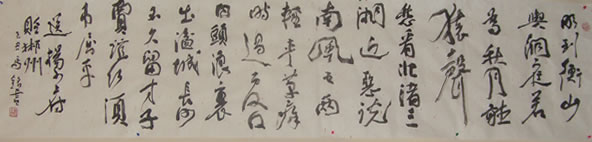 明到衡山
與洞庭若
為秋月聽
猿聲
愁看北渚三
湘近惡說
南風五兩
輕青草瘴
時過夏口
白頭浪裏
出湓城長沙
不久留才子
賈誼何須
弔屈平
送楊少府
貶郴州
書